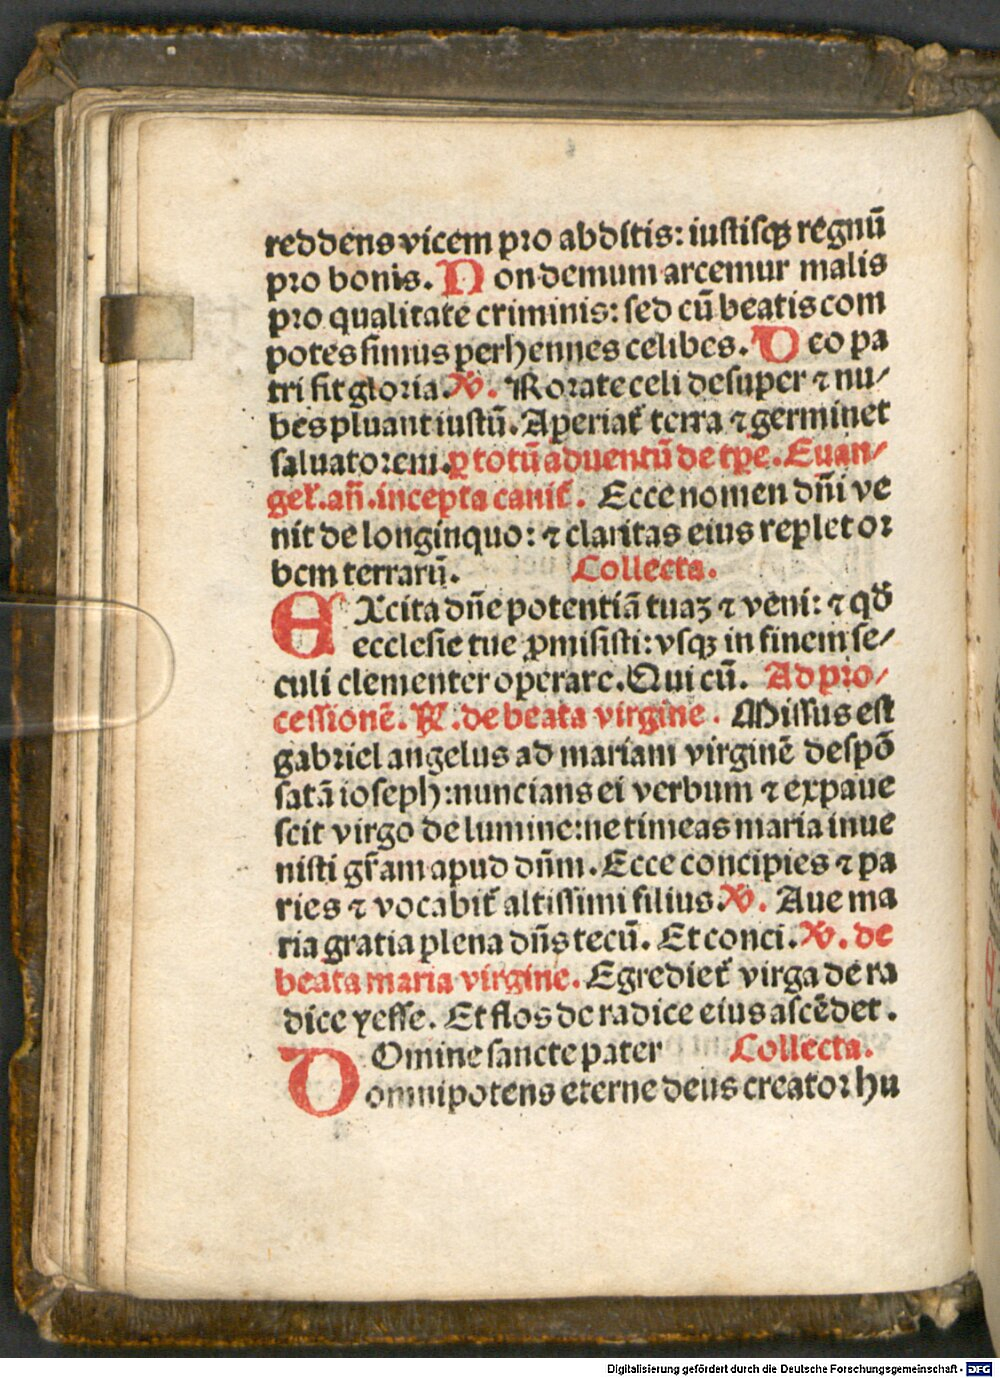 reddens vicem pro abditis: iustisqꝫ regnū
pro bonis. Non demum arcemur malis
pro qualitate criminis: sed cū beatis com
potes simus perhennes celibes. Deo pa
tri sit gloria. ℣. Rorate celi desuper ⁊ nu/
bes pluant iustū. Aperiat᷑ terra ⁊ germinet
saluatorem. ꝑ totū aduentū de tp̄e. Euan/
gel᷑. an̄. incepta canit᷑. Ecce nomen dn̄i ve
nit de longinquo: ⁊ claritas eius replet or
bem terrarū. Collecta.
EXcita dn̄e potentiā tuaꝫ ⁊ veni: ⁊ qđ
ecclesie tue ꝓmisisti: vsqꝫ in finem se/
culi clementer operare. Qui cū. Ad pro/
cessionē. ℟. de beata virgine. Missus est
gabriel angelus ad mariam virginē despō
satā ioseph: nuncians ei verbum ⁊ expaue
scit virgo de lumine: ne timeas maria inue
nisti gr̄am apud dn̄m. Ecce concipies ⁊ pa
ries ⁊ vocabit᷑ altissimi filius. ℣. Aue ma
ria gratia plena dn̄s tecū. Et conci. ℣. de
beata maria virgine. Egrediet᷑ virga de ra
dice yesse. Et flos de radice eius ascēdet.
DOmine sancte pater Collecta.
omnipotens eterne deus creator hu
Digitalisierung gefördert durch die Deutsche Forschungsgemeinschaft - DFG